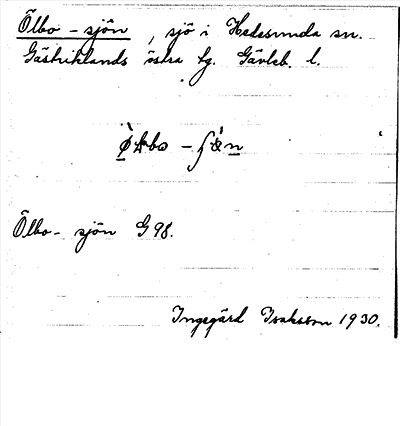 Ölbo - sjön, sjö i Hedesunda sn.
Gästriklands östra tg. Gävleb. l.
Ölbo - sjön G 98.
Ingegärd Isaksson 1930.